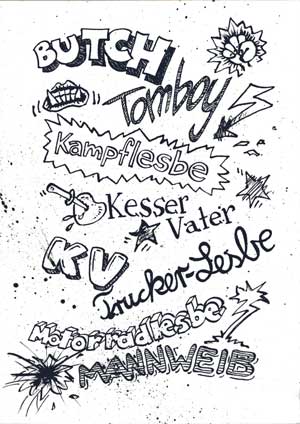 BUTCH
Tomboy
Kampflesbe
Kesser
Vater
KV
Trucker-Lesbe
Motorradlesbe
MANNWEIB